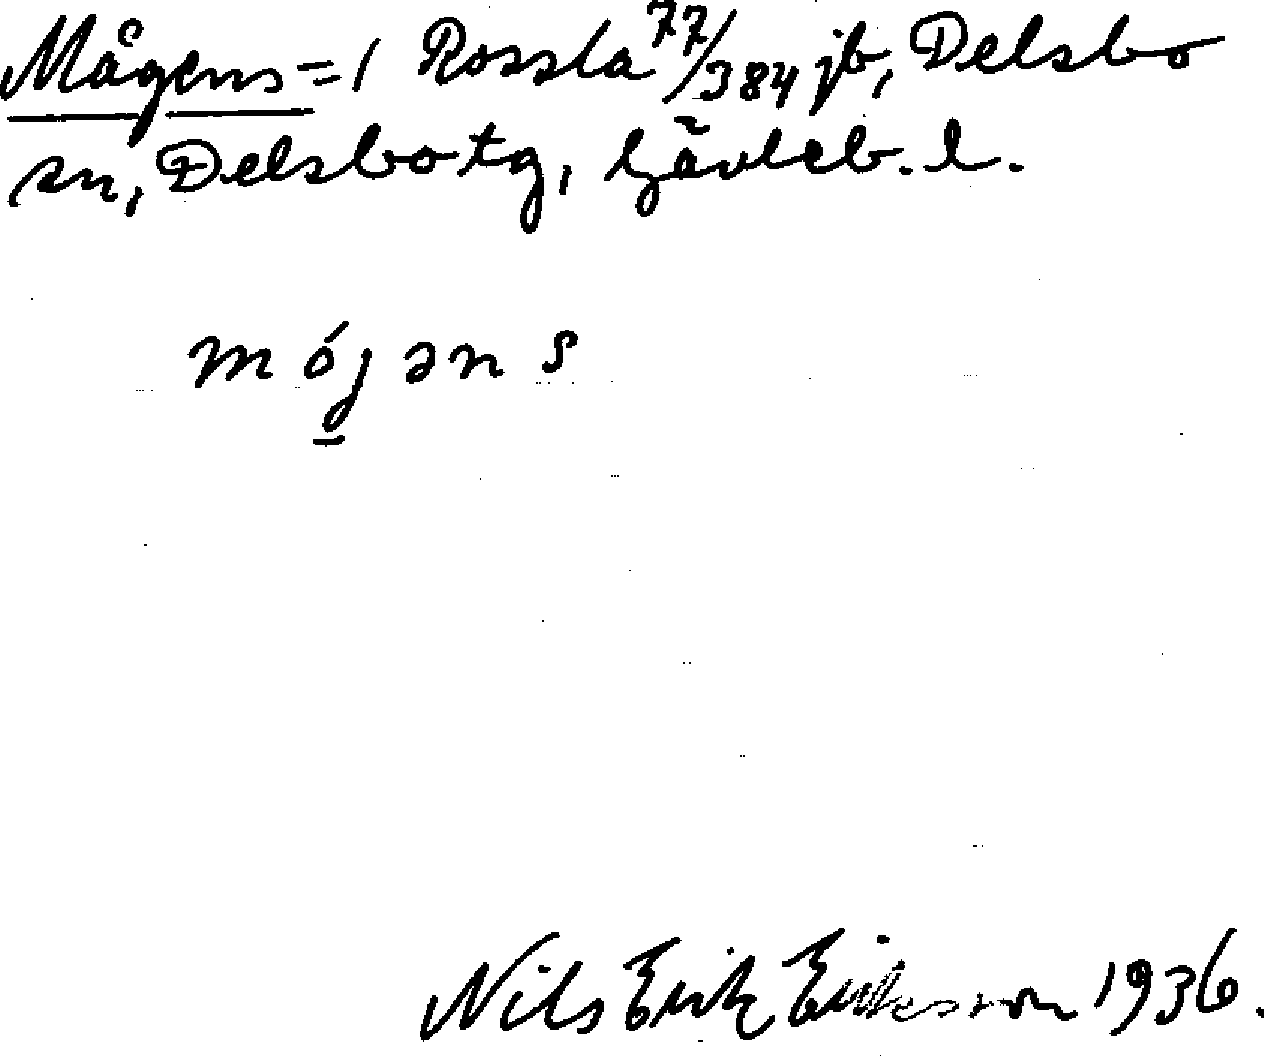 Mågens = 1 Rossla 77/384 jb, Delsbo
sn, Delsbo tg, Gävleb. l.
mójəns
Nils Erik Eriksson 1936.